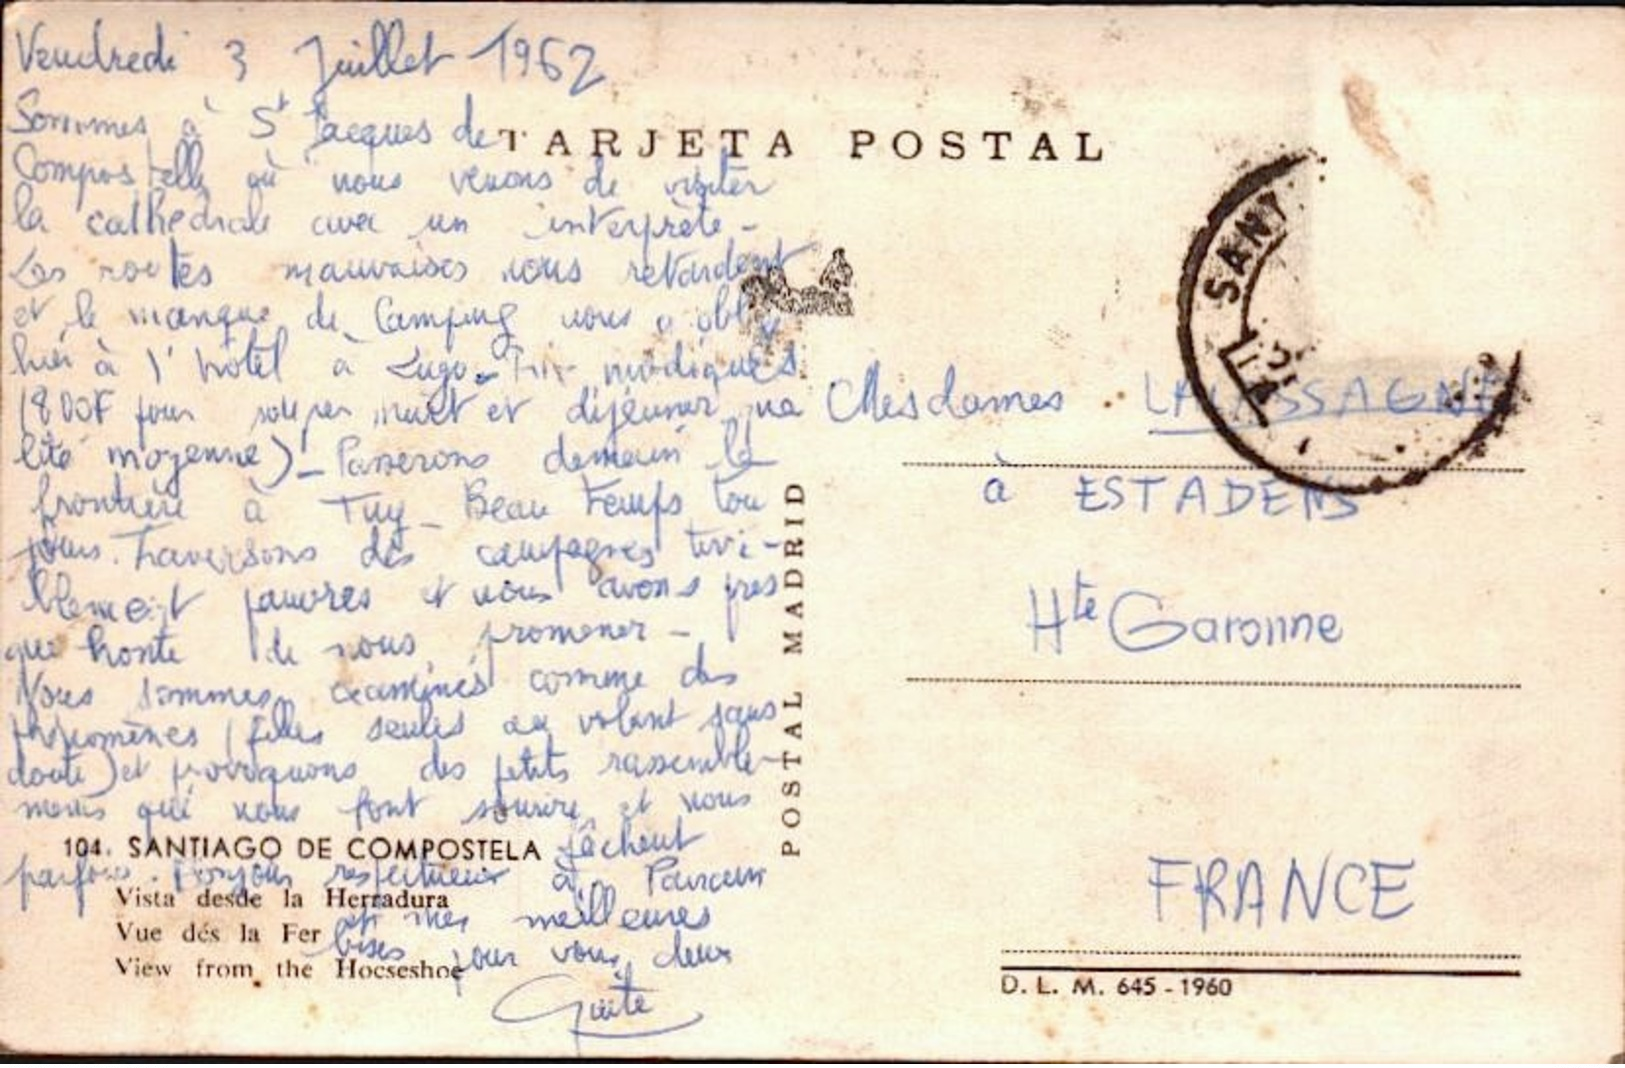 Vendredi 3 Juillet 1962
Sommes à St Jacques de
Compostelle où nous venons de visiter
la cathédrale avec un interprète -
Les routes mauvaises nous retardent
et le manque de Camping nous a obli
hier à l'hôtel à Lugo - Prix modiques
(800F pour souper nuit et déjeuner qua
lité moyenne) - Passerons demain la
frontière à Tuy - Beau temps tou
jours. Traversons des campagnes terri-
blement pauvres et nous avons pres
que honte de nous promener -
Nous sommes examinés comme des
phénomènes (filles seules au volant sans
doute) et provoquons des petits rassemble-
ments qui nous font sourire et nous
fâchent
parfois. Bonjour respectueux à
et mes meilleures
bises pour vous deux
Guite
TARJETA POSTAL
POSTAL MADRID
104. SANTIAGO DE COMPOSTELA
Vista desde la Herradura
Vue dés la Fer
View from the Hocseshoe
SANT
Mesdames
à ESTADENS
Hte Garonne
FRANCE
D. L. M. 645 - 1960